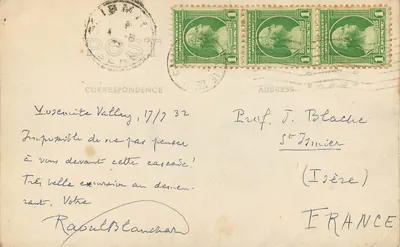 1 1 1
CORRESPONDENCE
ADDRESS
Yosemite Valley, 17/7 32
Impossible de ne pas penser
à vous devant cette cascade!
Très belle excursion au demeu-
rant. Votre
Raoul Blanchard
Prof. J. Blache
St Ismier
(Isère)
FRANCE